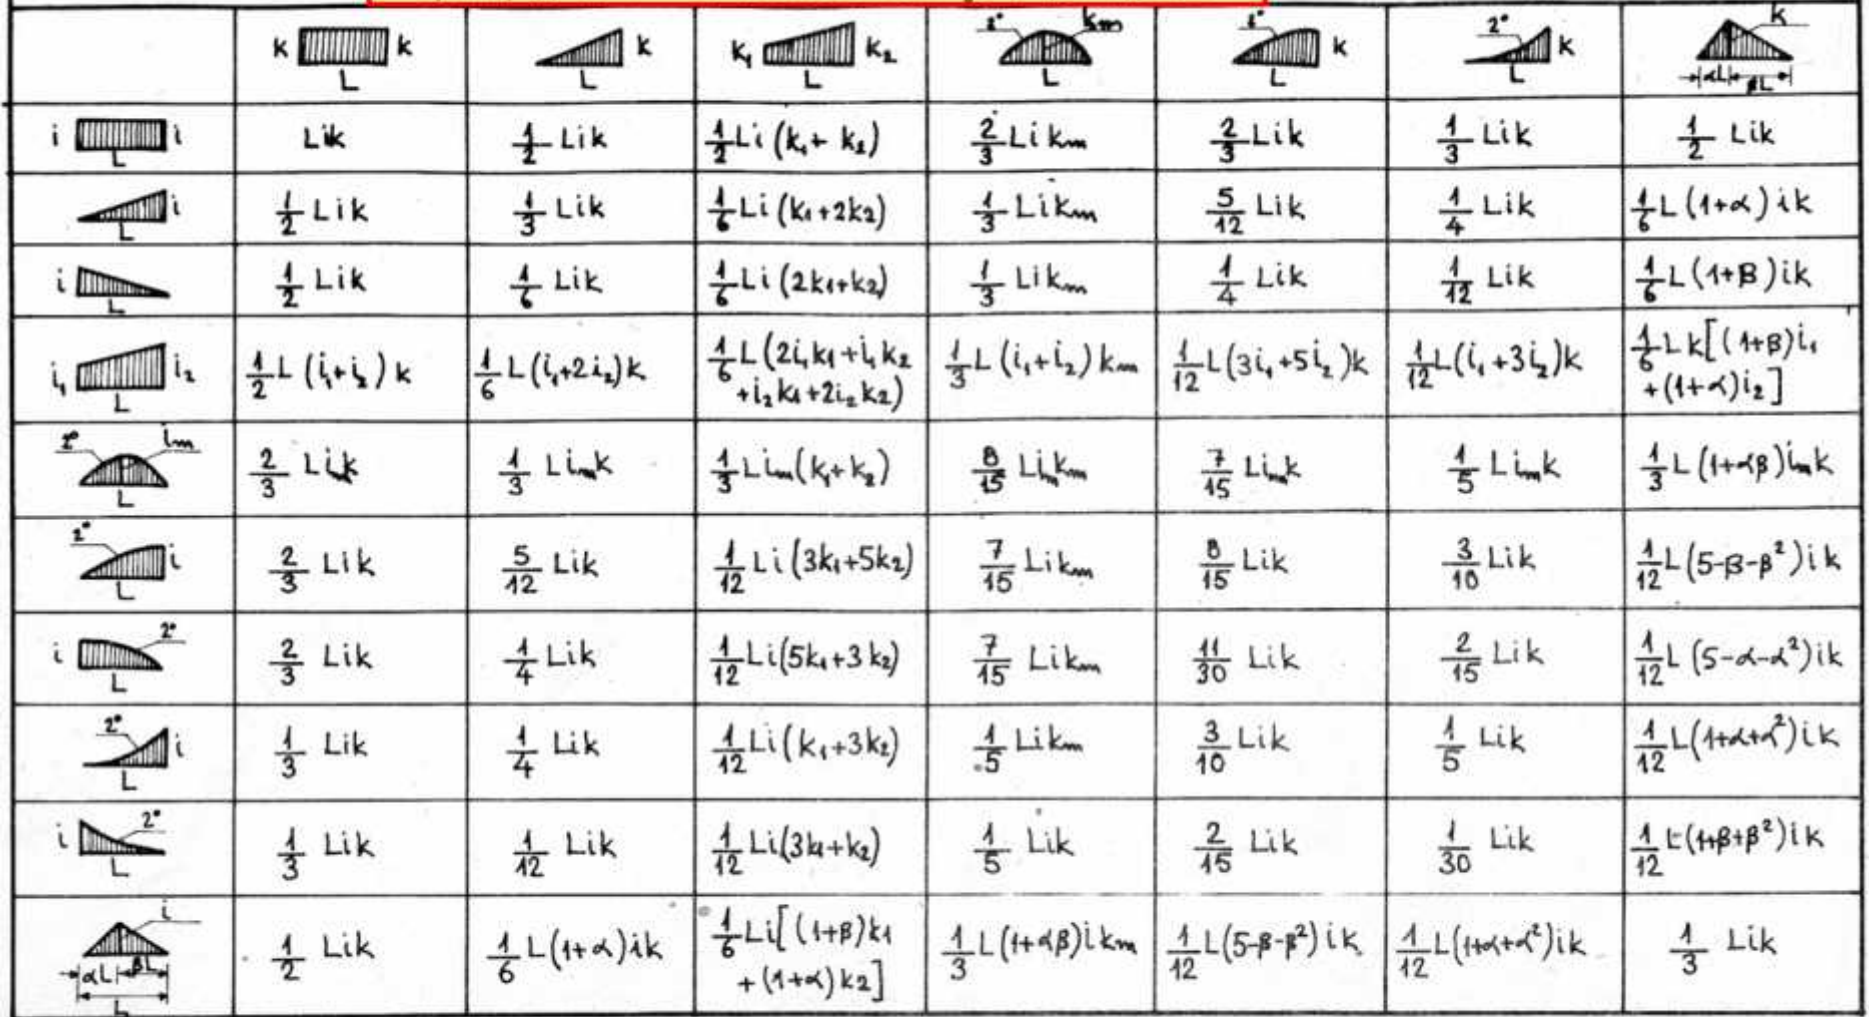 k k L
L k
k₁ k₂ L
2° km L
2° k L
2° k L
k αL βL
i i L
Lik
1/2 Lik
1/2 Li (k₁+ k₂)
2/3 Li km
2/3 Lik
1/3 Lik
1/2 Lik
i L
1/2 Lik
1/3 Lik
1/6 Li (k₁+2k₂)
1/3 Likm
5/12 Lik
1/4 Lik
1/6 L (1+α) ik
i L
1/2 Lik
1/6 Lik
1/6 Li (2k₁+k₂)
1/3 Likm
1/4 Lik
1/12 Lik
1/6 L (1+β) ik
i₁ i₂ L
1/2 L (i₁+i₂) k
1/6 L(i₁+2i₂)k
1/6 L(2i₁k₁+i₁k₂
+i₂k₁+2i₂k₂)
1/3 L (i₁+i₂) km
1/12 L(3i₁+5i₂)k
1/12 L(i₁+3i₂)k
1/6 Lk[(1+β)i₁
+(1+α)i₂]
2° im L
2/3 Limk
1/3 Limk
1/3 Lim(k₁+k₂)
8/15 Limkm
7/15 Limk
1/5 Limk
1/3 L (1+αβ)imk
2° i L
2/3 Lik
5/12 Lik
1/12 Li (3k₁+5k₂)
7/15 Likm
8/15 Lik
3/10 Lik
1/12 L(5-β-β²)ik
i 2° L
2/3 Lik
1/4 Lik
1/12 Li(5k₁+3k₂)
7/15 Likm
11/30 Lik
2/15 Lik
1/12 L (5-α-α²)ik
2° i L
1/3 Lik
1/4 Lik
1/12 Li(k₁+3k₂)
1/5 Likm
3/10 Lik
1/5 Lik
1/12 L(1+α+α²)ik
i 2° L
1/3 Lik
1/12 Lik
1/12 Li(3k₁+k₂)
1/5 Lik
2/15 Lik
1/30 Lik
1/12 L(1+β+β²)ik
i αL βL L
1/2 Lik
1/6 L(1+α)ik
1/6 Li[(1+β)k₁
+(1+α)k₂]
1/3 L(1+αβ)ikm
1/12 L(5-β-β²)ik
1/12 L(1+α+α²)ik
1/3 Lik